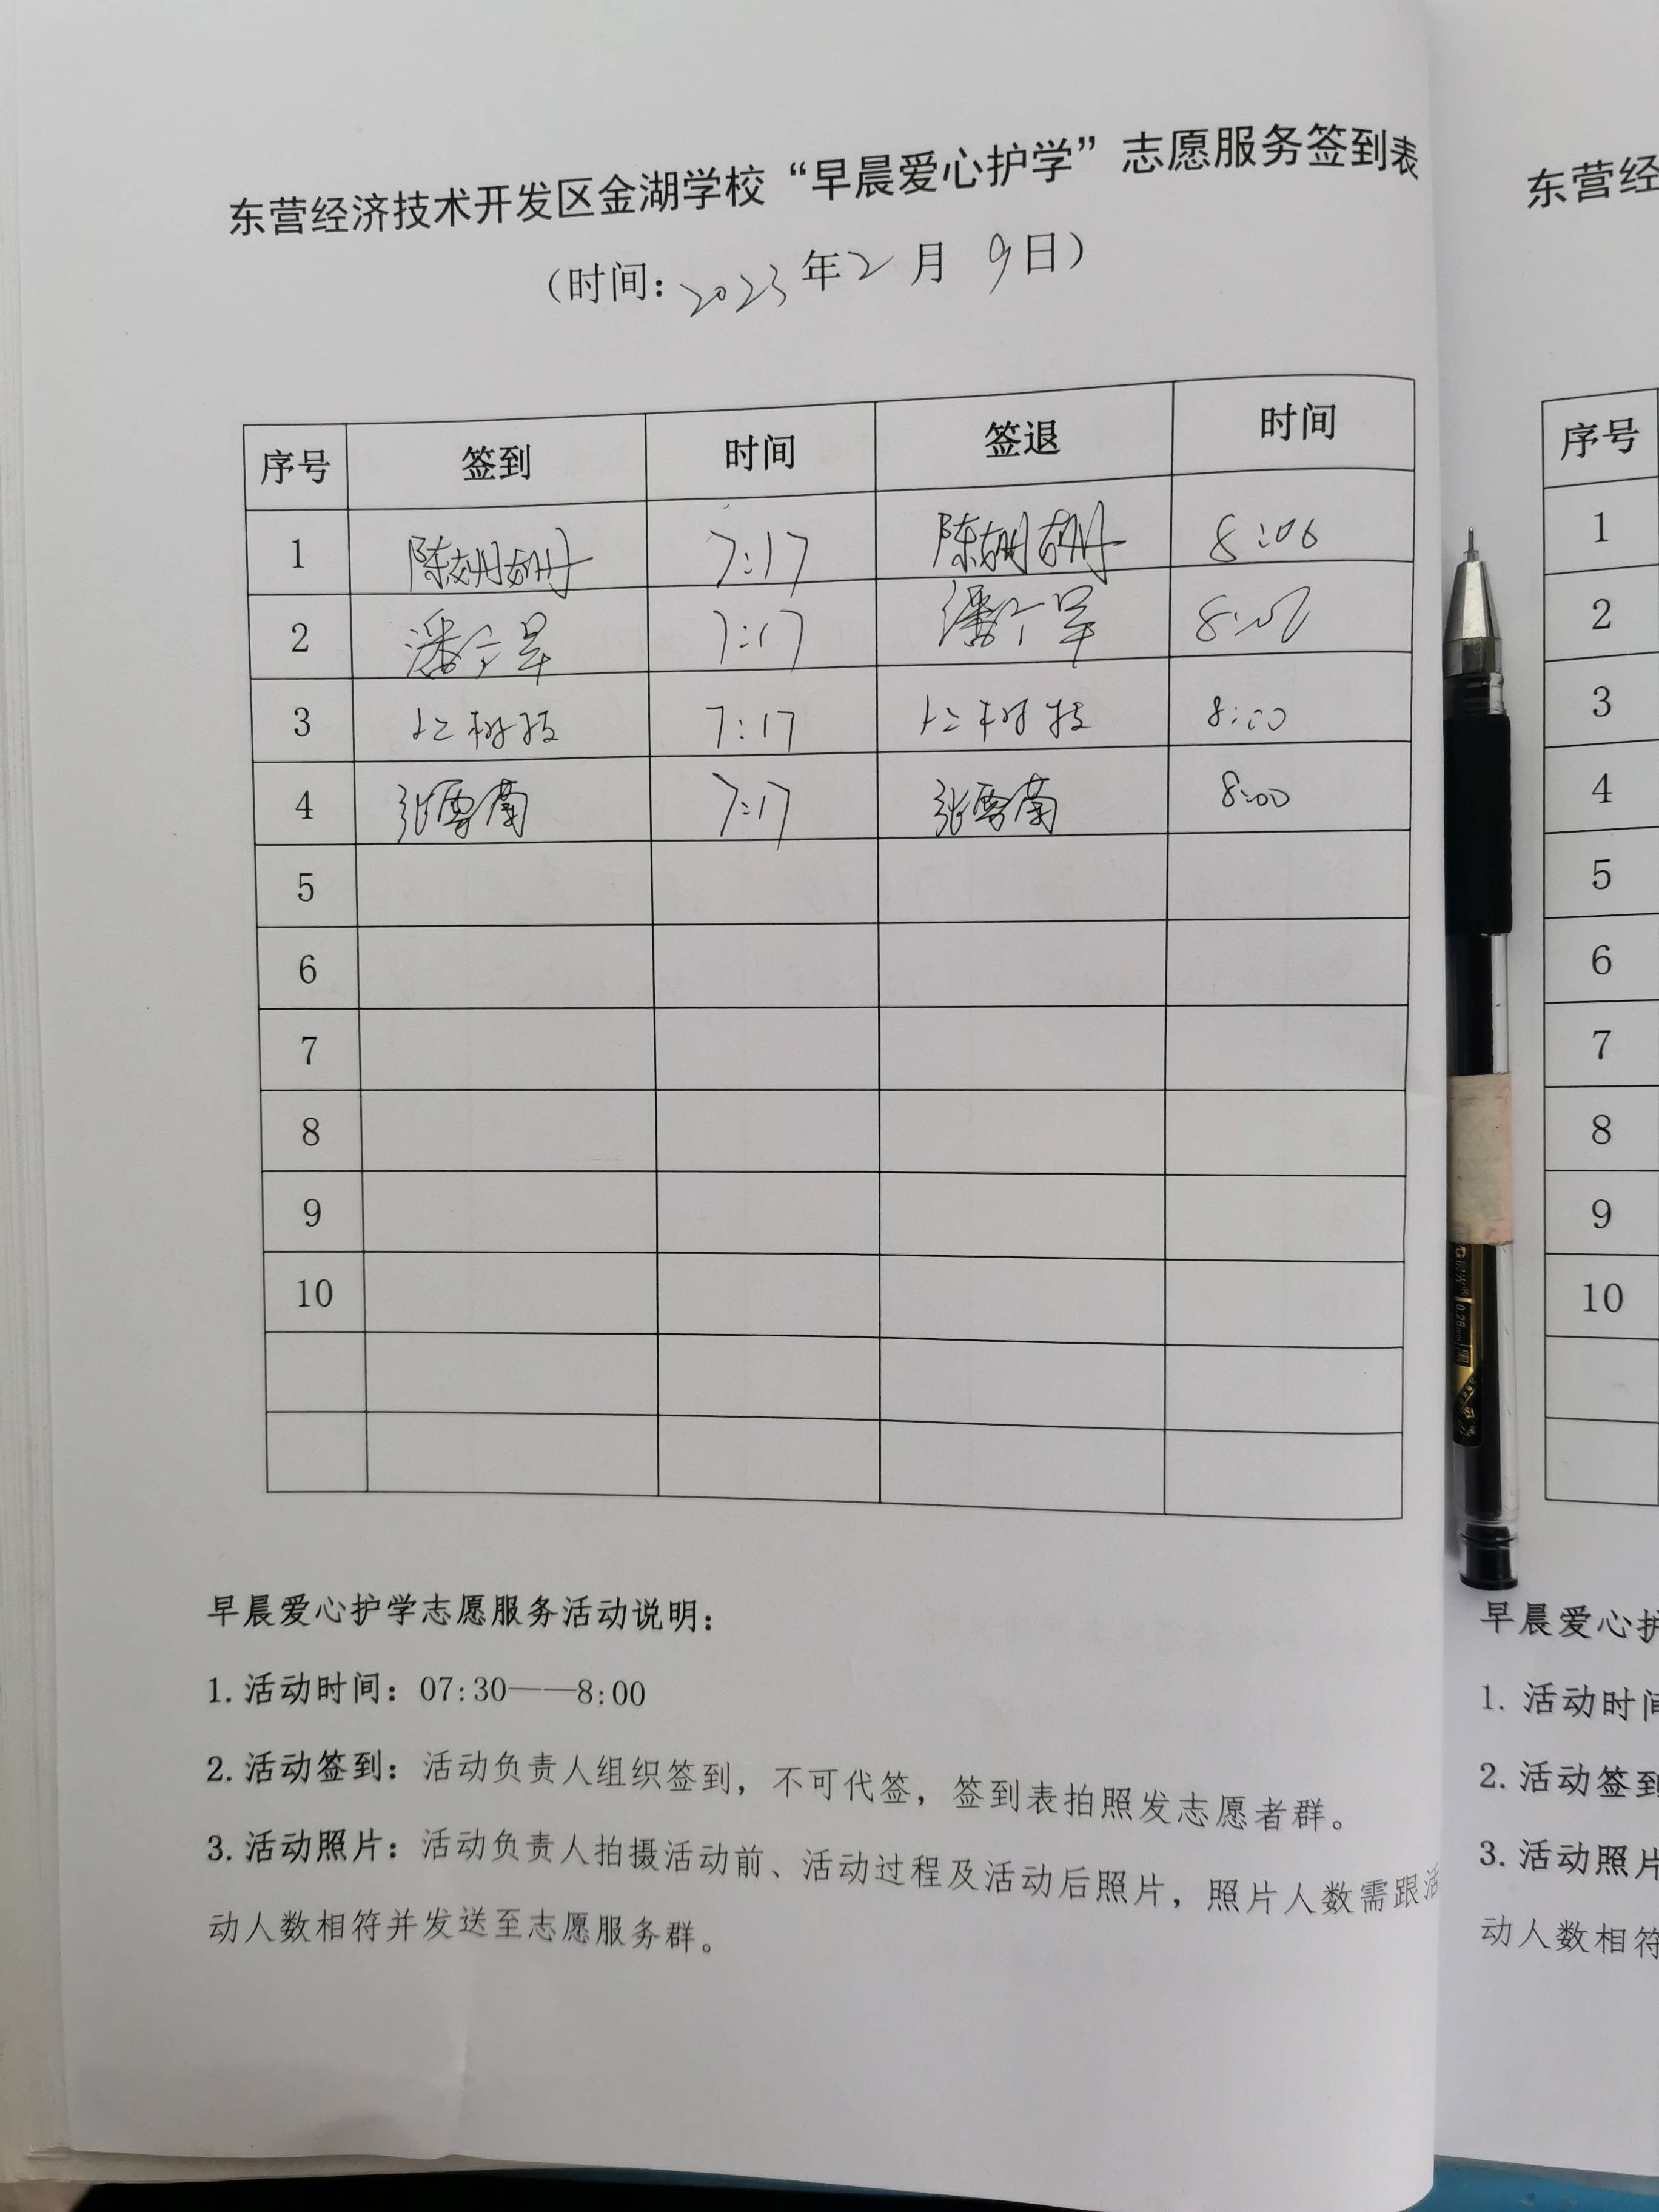 东营经济技术开发区金湖学校“早晨爱心护学”志愿服务签到表
（时间：2023年2月9日）
序号 签到 时间 签退 时间
1 陈姗姗 7:17 陈姗姗 8:06
2 潘 7:17 潘
3 7:17 8:00
4 张雪菊 7:17 张雪菊 8:00
5
6
7
8
9
10
早晨爱心护学志愿服务活动说明：
1.活动时间：07:30——8:00
2.活动签到：活动负责人组织签到，不可代签，签到表拍照发志愿者群。
3.活动照片：活动负责人拍摄活动前、活动过程及活动后照片，照片人数需跟活
动人数相符并发送至志愿服务群。
东营经
序号
1
2
3
4
5
6
7
8
9
10
早晨爱心护
1.活动时间
2.活动签到
3.活动照片
动人数相符
0.28mm 黑